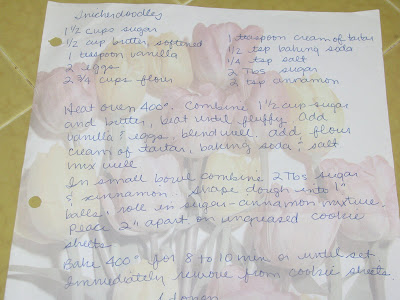 Snickerdoodles
1 1/2 cups sugar
1/2 cup butter, softened
1 teaspoon vanilla
2 eggs
2 3/4 cups flour
1 teaspoon cream of tartar
1/2 tsp baking soda
1/4 tsp salt
2 Tbs sugar
2 tsp cinnamon
Heat oven 400°. Combine 1 1/2 cup sugar
and butter, beat until fluffy. Add
vanilla & eggs, blend well. Add flour
cream of tartar, baking soda & salt
mix well
In small bowl combine 2 Tbs sugar
& cinnamon. Shape dough into 1"
balls, roll in sugar-cinnamon mixture.
Place 2" apart on ungreased cookie
sheets
Bake 400° for 8 to 10 min or until set
Immediately remove from cookie sheets.